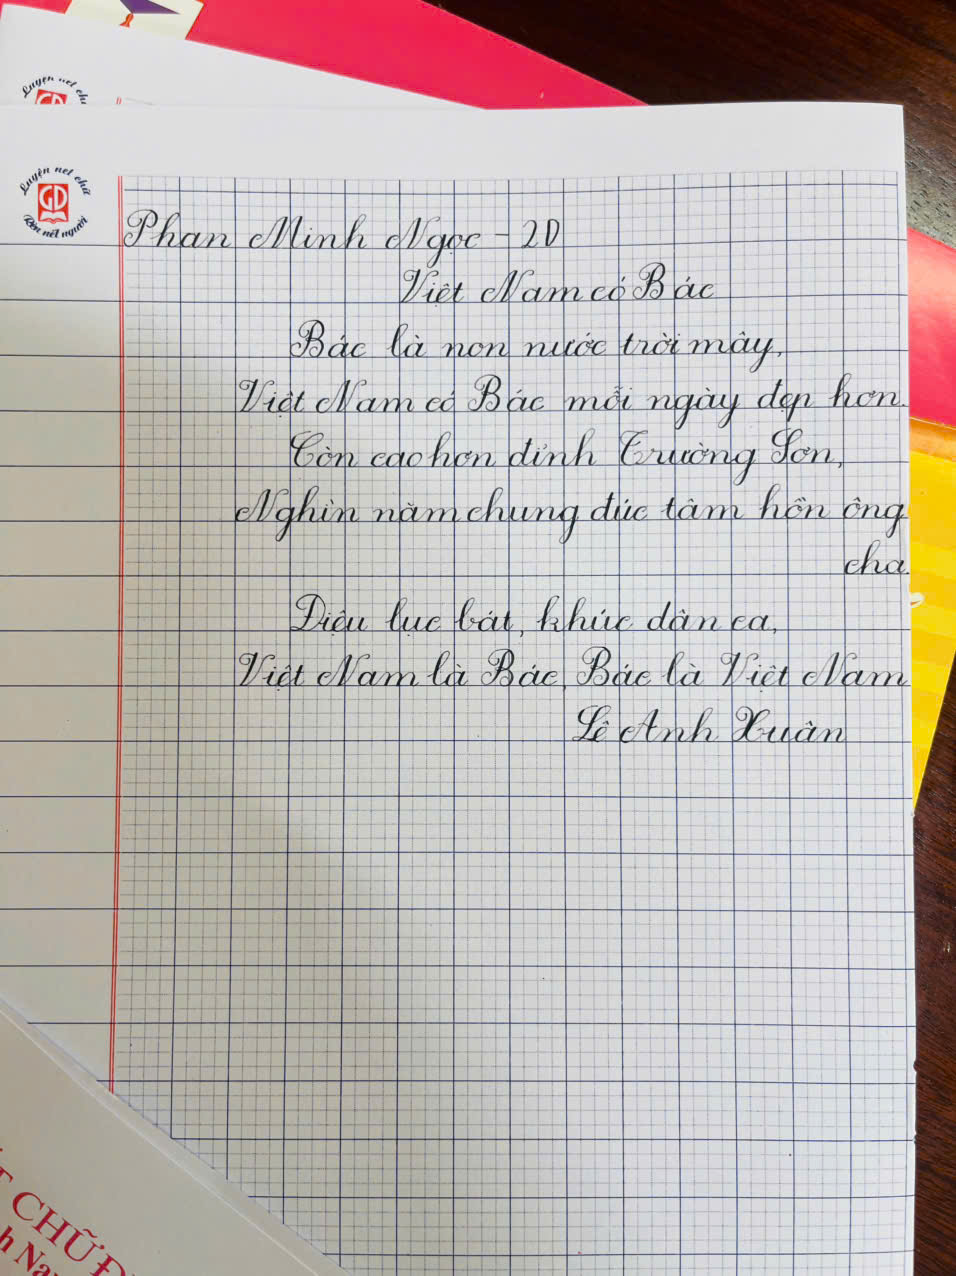 Luyện nét chữ
Luyện nét chữ
GD
Rèn nết người
Phan Minh Ngọc - 2D
Việt Nam có Bác
Bác là non nước trời mây,
Việt Nam có Bác mỗi ngày đẹp hơn.
Còn cao hơn đỉnh Trường Sơn,
Nghìn năm chung đúc tâm hồn ông
cha.
Điệu lục bát, khúc dân ca,
Việt Nam là Bác, Bác là Việt Nam
Lê Anh Xuân
CHỮ Đ